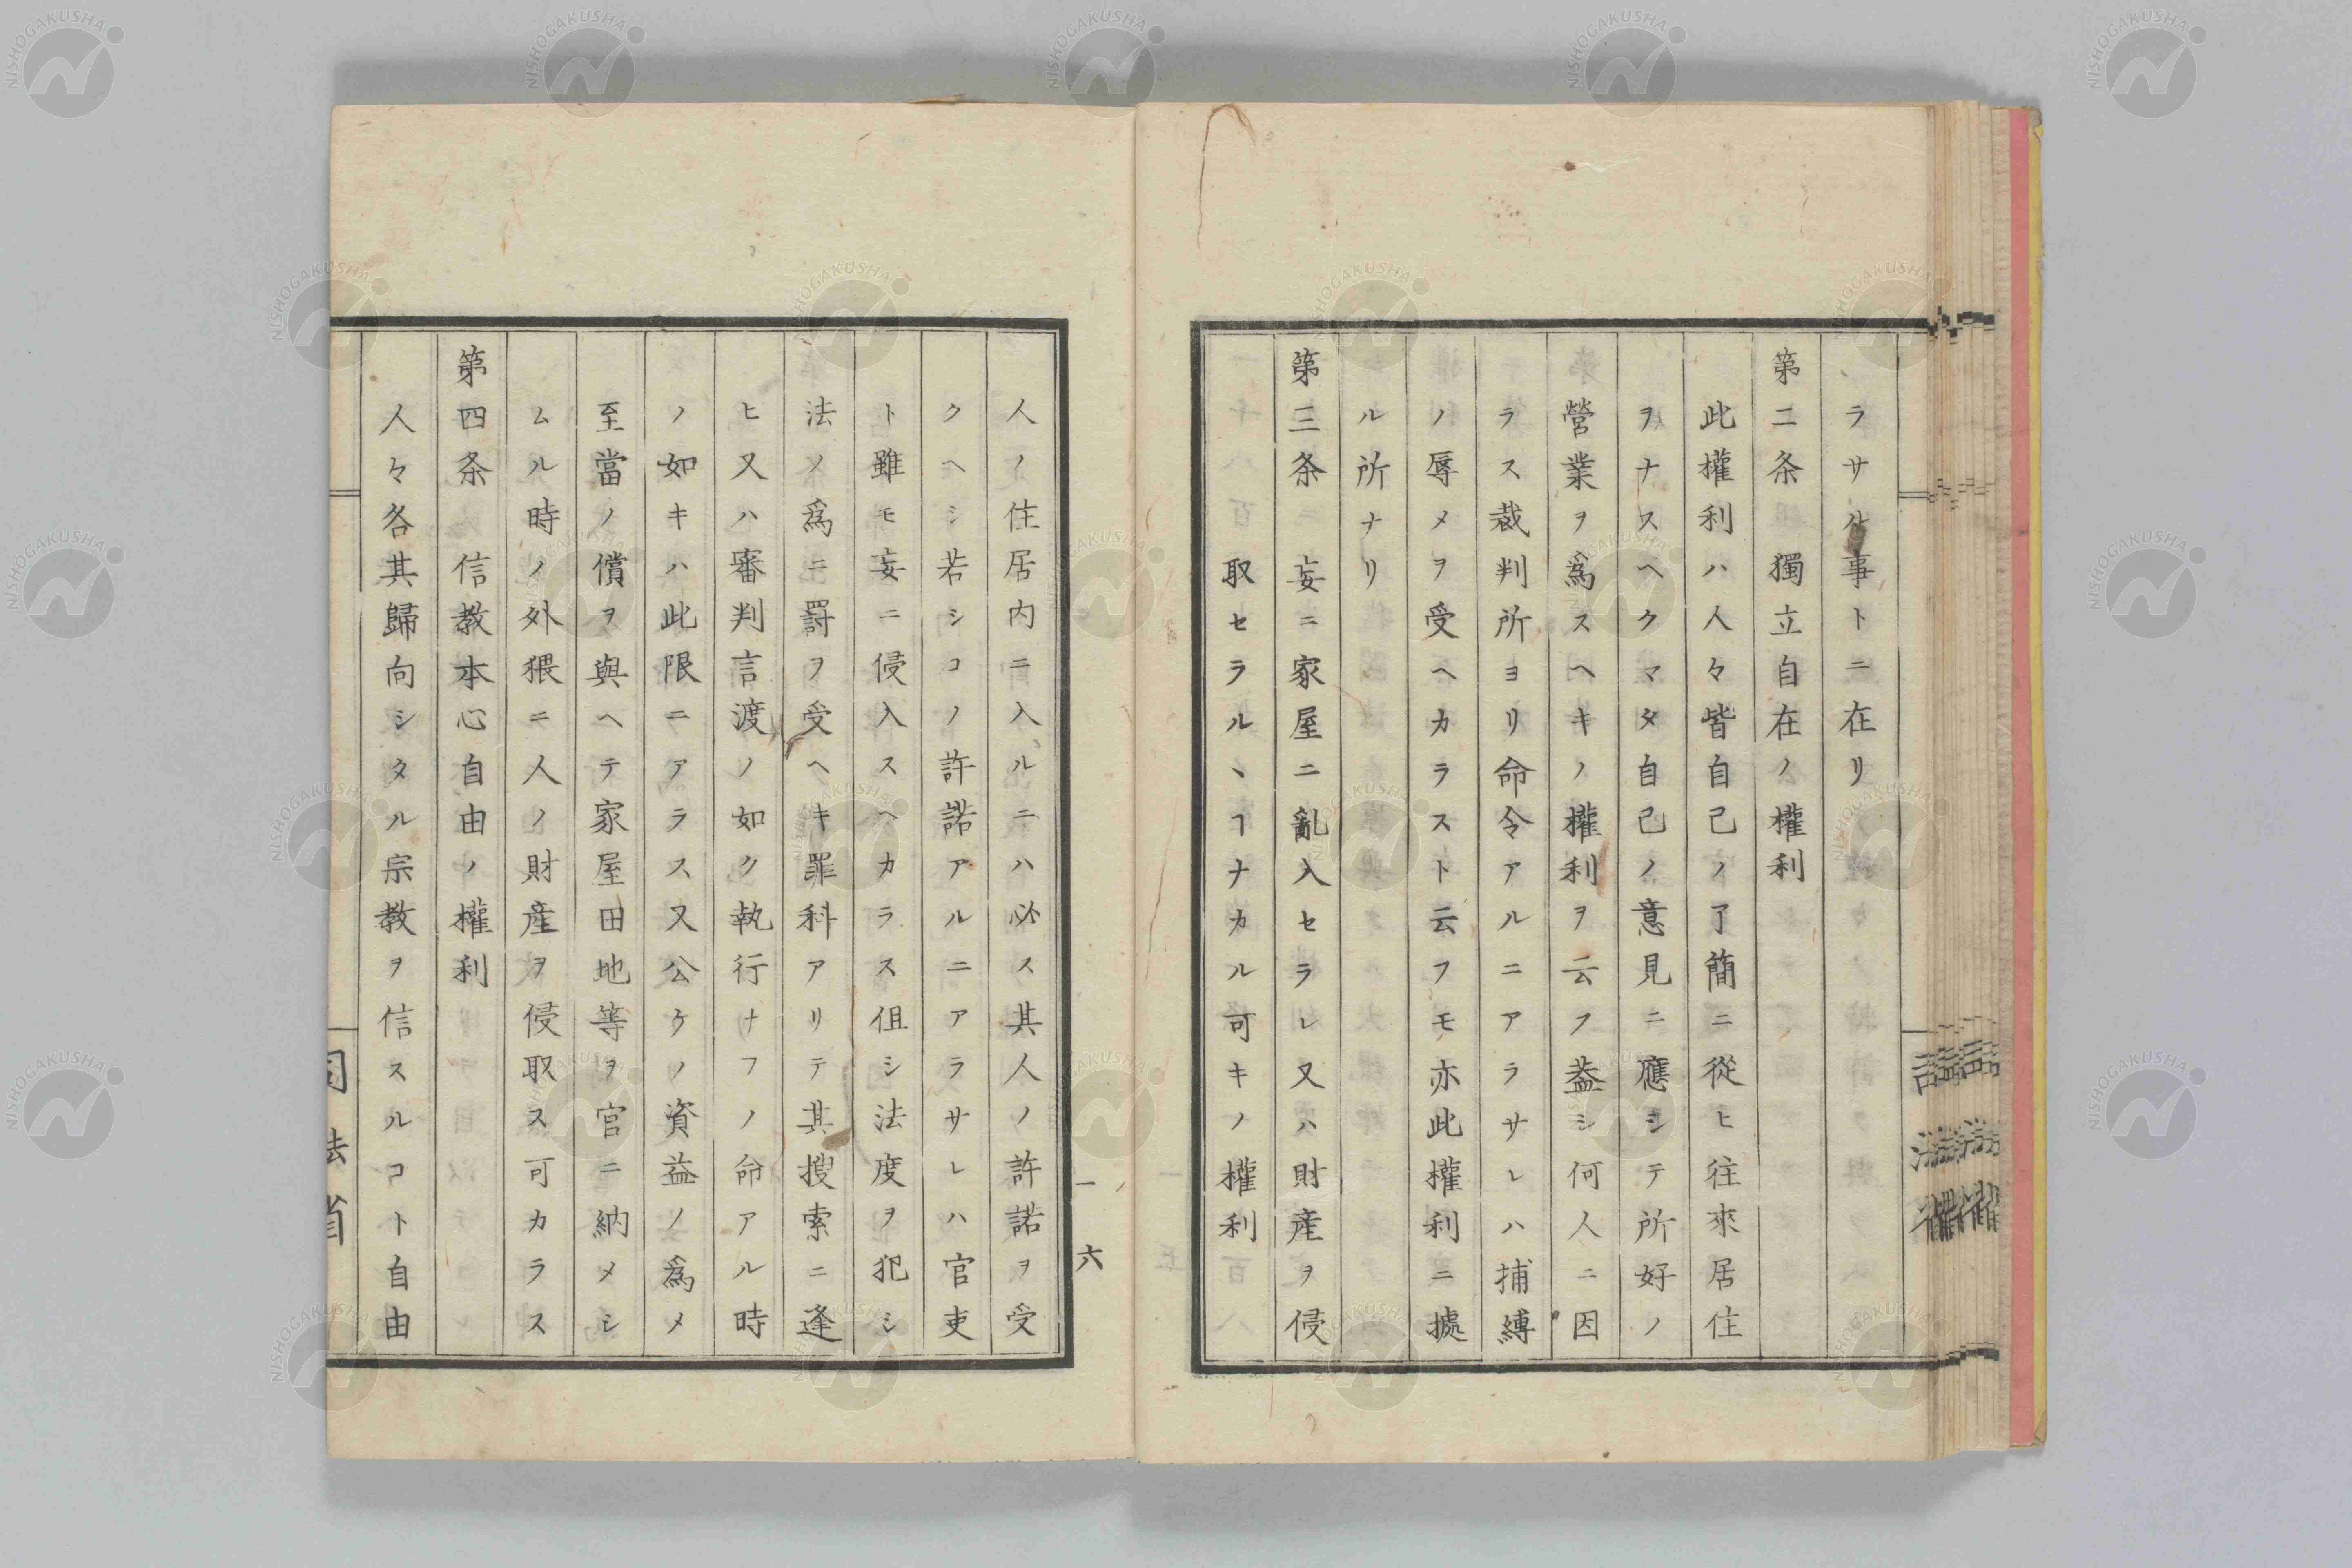 ラサル事トニ在リ
第二条　獨立自在ノ權利
此權利ハ人々皆自己ノ了簡ニ從ヒ往來居住
ヲナスヘクマタ自己ノ意見ニ應シテ所好ノ
營業ヲ爲スヘキノ權利ヲ云フ蓋シ何人ニ因
ラス裁判所ヨリ命令アルニアラサレハ捕縛
ノ辱メヲ受ヘカラスト云フモ亦此權利ニ據
ル所ナリ
第三条　妄ニ家屋ニ亂入セラレ又ハ財産ヲ侵
取セラルヽヿナカル可キノ權利
人ノ住居内ニ入ルニハ必ス其人ノ許諾ヲ受
クヘシ若シコノ許諾アルニアラサレハ官吏
ト雖モ妄ニ侵入スヘカラス但シ法度ヲ犯シ
法ノ爲ニ罰ヲ受ヘキ罪科アリテ其搜索ニ逢
ヒ又ハ審判言渡ノ如ク執行ナフノ命アル時
ノ如キハ此限ニアラス又公ケノ資益ノ爲メ
至當ノ償ヲ與ヘテ家屋田地等ヲ官ニ納メシ
ムル時ノ外猥ニ人ノ財産ヲ侵取ス可カラス
第四条　信教本心自由ノ權利
人々各其歸向シタル宗教ヲ信スルコト自由
一　六
法省
NISHOGAKUSHA